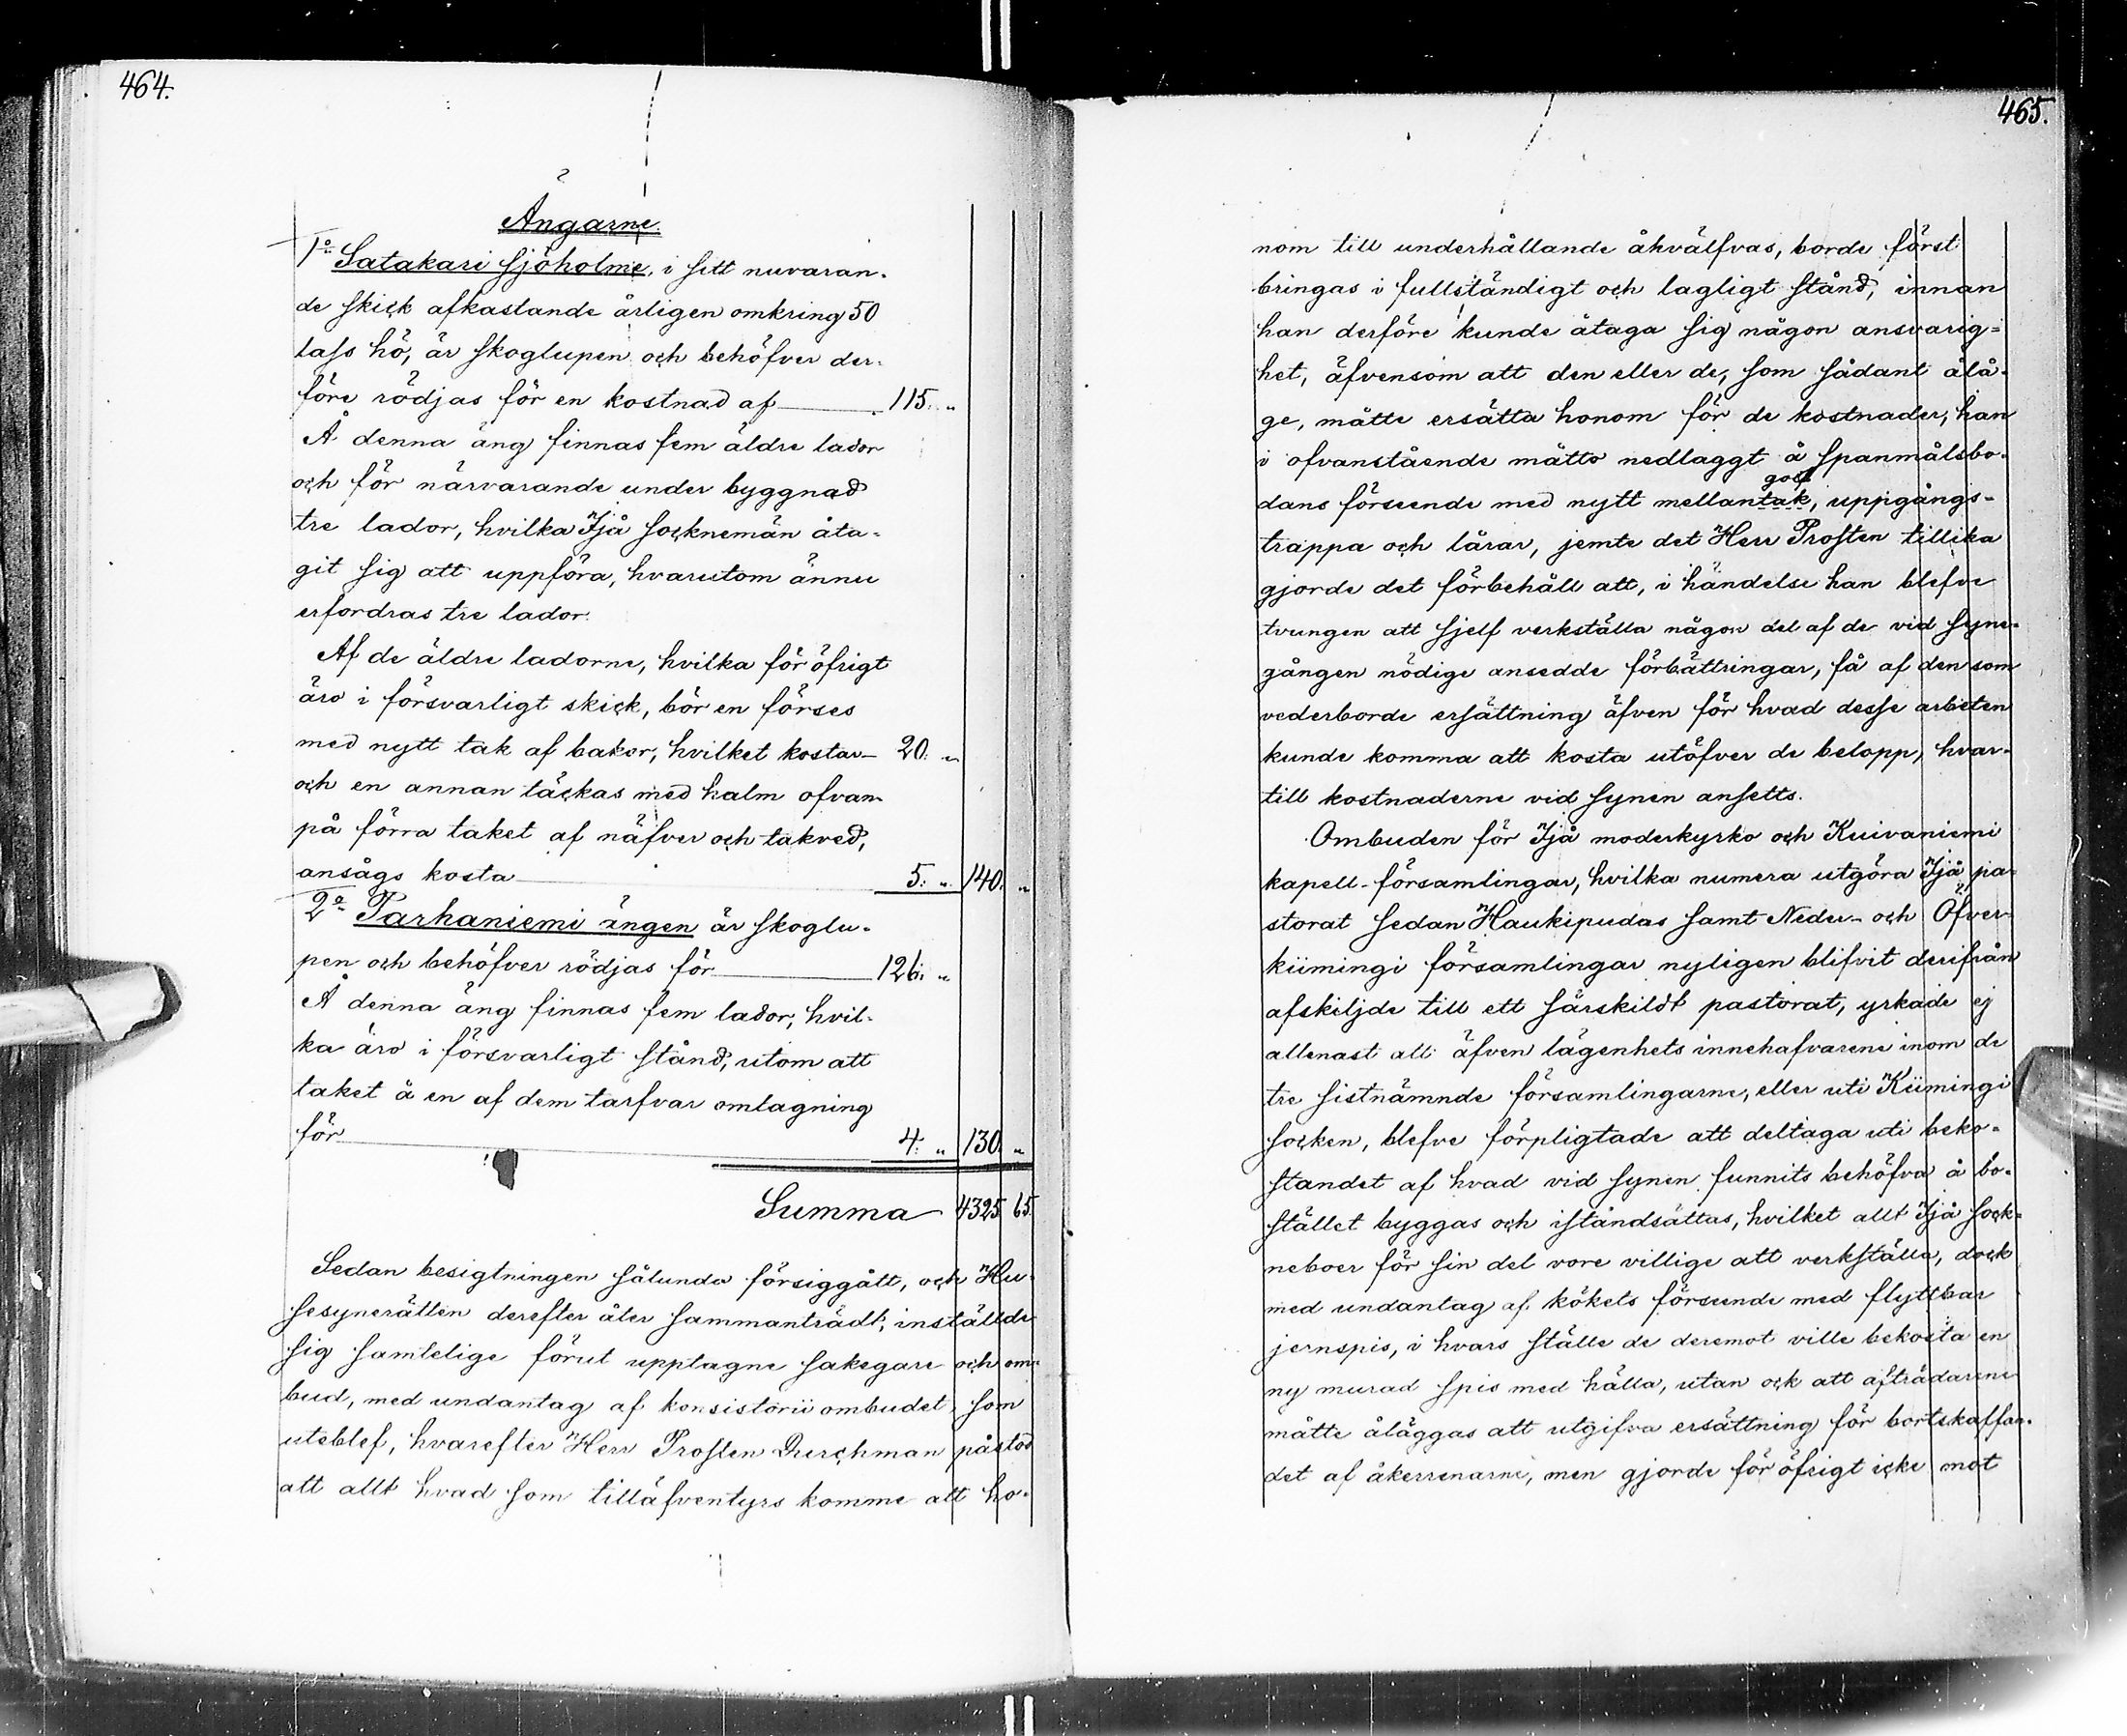 464.
Ängarne.
1:o Satakari sjöholme, i sitt nuvaran-
de skick afkastande årligen omkring 50
lass hö, är skoglupen och behöfver der-
före rödjas för en kostnad af 115. "
Å denna äng finnas fem äldre lador
och för närvarande under byggnad
tre lador, hvilka Ijå socknemän åta-
git sig att uppföra, hvarutom ännu
erfordras tre lador.
Af de äldre ladorne, hvilka för öfrigt
äro i försvarligt skick, bör en förses
med nytt tak af bakor, hvilket kostar 20. "
och en annan täckas med halm ofvan-
på förra taket af näfver och takved,
ansågs kosta 5. " 140. "
2:o Tarhaniemi ängen är skoglu-
pen och behöfver rödjas för 126. "
Å denna äng finnas fem lador, hvil-
ka äro i försvarligt stånd, utom att
taket å en af dem tarfvar omlagning
för 4. " 130. "
Summa 4325 65.
Sedan besigtningen sålunda försiggått, och Hu-
sesynerätten derefter åter sammanträdt, inställde
sig samtelige förut upptagne sakegare och om-
bud, med undantag af konsistorii ombudet, som
uteblef, hvarefter Herr Prosten Durchman påstod
att allt hvad som tilläfventyrs komme att ho-
465.
nom till underhållande åhvälfvas, borde först
bringas i fullständigt och lagligt stånd, innan
han derföre kunde åtaga sig någon ansvarig-
het, äfvensom att den eller de, som sådant ålå-
ge, måtte ersätta honom för de kostnader, han
i ofvanstående måtto nedlaggt å spanmålsbo-
golf
dans förseende med nytt mellantak, uppgångs-
trappa och lårar, jemte det Herr Prosten tillika
gjorde det förbehåll att, i händelse han blefve
tvungen att sjelf verkställa någon del af de vid syne-
gången nödige ansedde förbättringar, få af den som
vederborde ersättning äfven för hvad desse arbeten
kunde komma att kosta utöfver de belopp, hvar-
till kostnaderne vid synen ansetts.
Ombuden för Ijå moderkyrko och Kuivaniemi
kapell-församlingar, hvilka numera utgöra Ijå pa-
storat sedan Haukipudas samt Neder- och Öfver-
kiimingi församlingar nyligen blifvit derifrån
afskiljde till ett särskildt pastorat, yrkade ej
allenast att äfven lägenhets innehafvarene inom de
tre sistnämnde församlingarne, eller uti Kiimingi
socken, blefve förpligtade att deltaga uti beko-
standet af hvad vid synen funnits behöfva å bo-
stället byggas och iståndsättas, hvilket allt Ijå sock-
neboer för sin del vore villige att verkställa, dock
med undantag af kökets förseende med flyttbar
jernspis, i hvars ställe de deremot ville bekosta en
ny murad spis med hälla, utan ock att afträdarene
måtte åläggas att utgifva ersättning för bortskaffan-
det af åkerrenarne, men gjorde för öfrigt icke mot